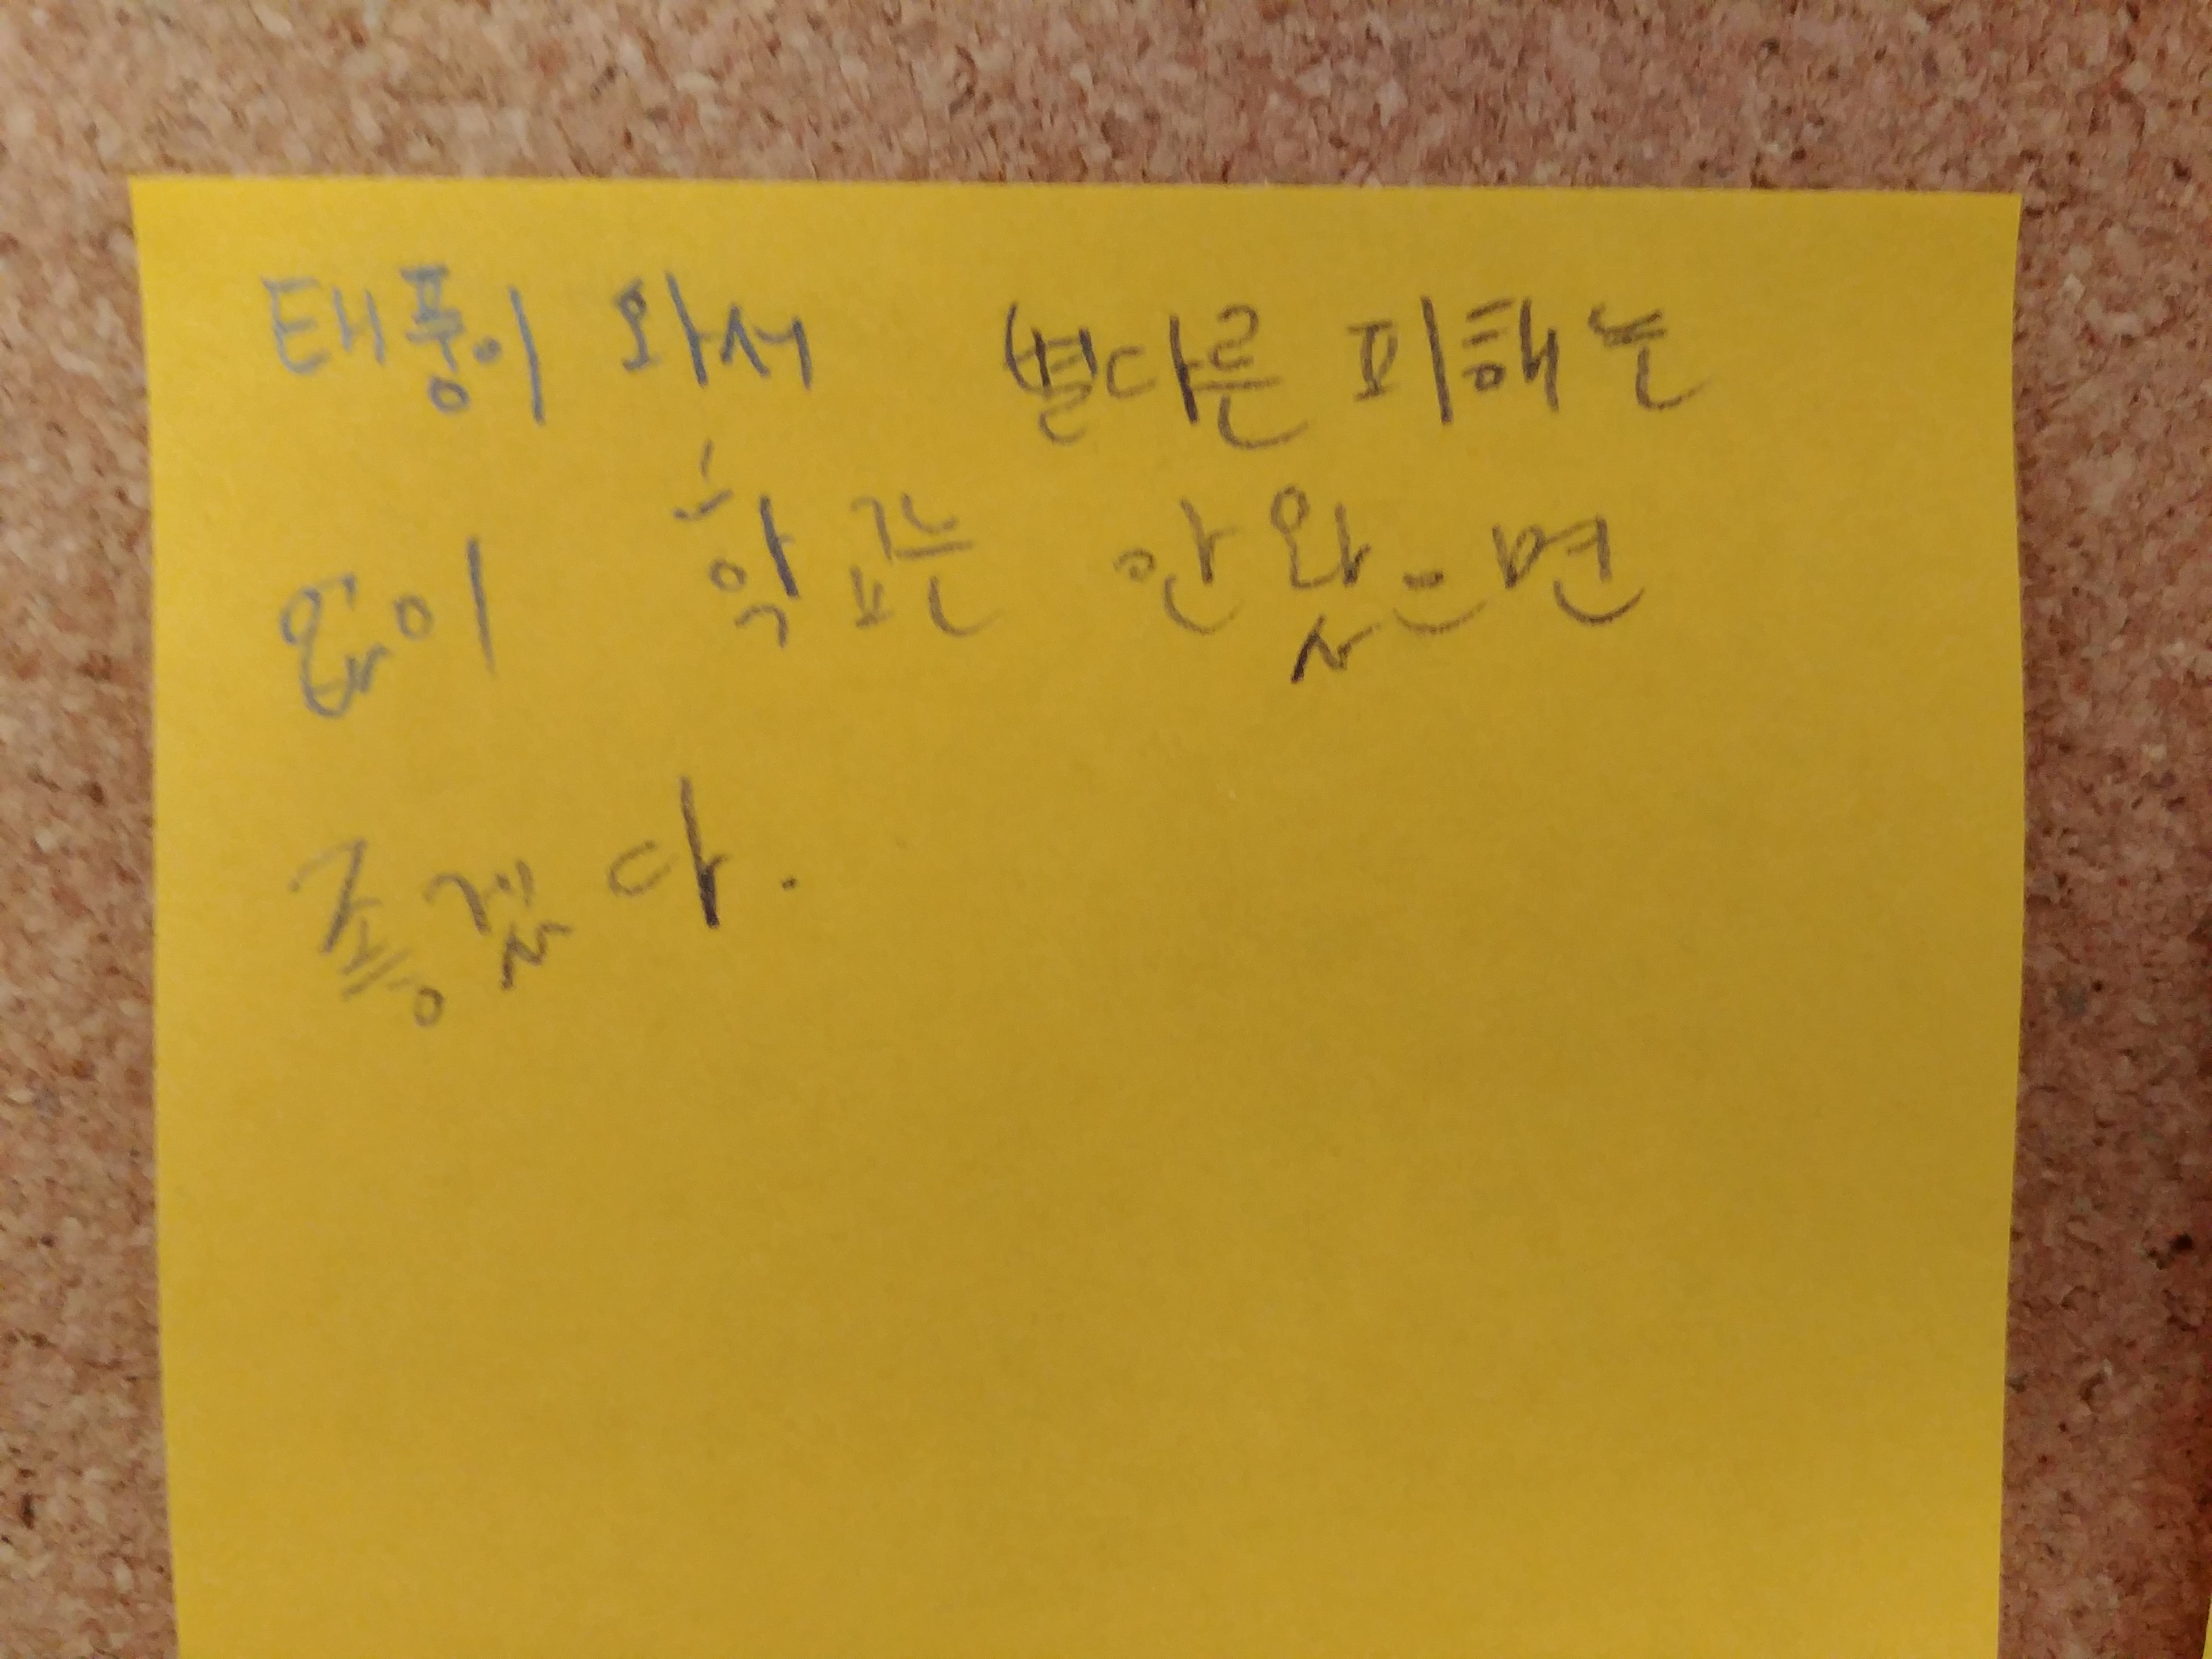 태풍이 와서 별다른 피해는
없이 학교는 안 왔으면
좋겠다.